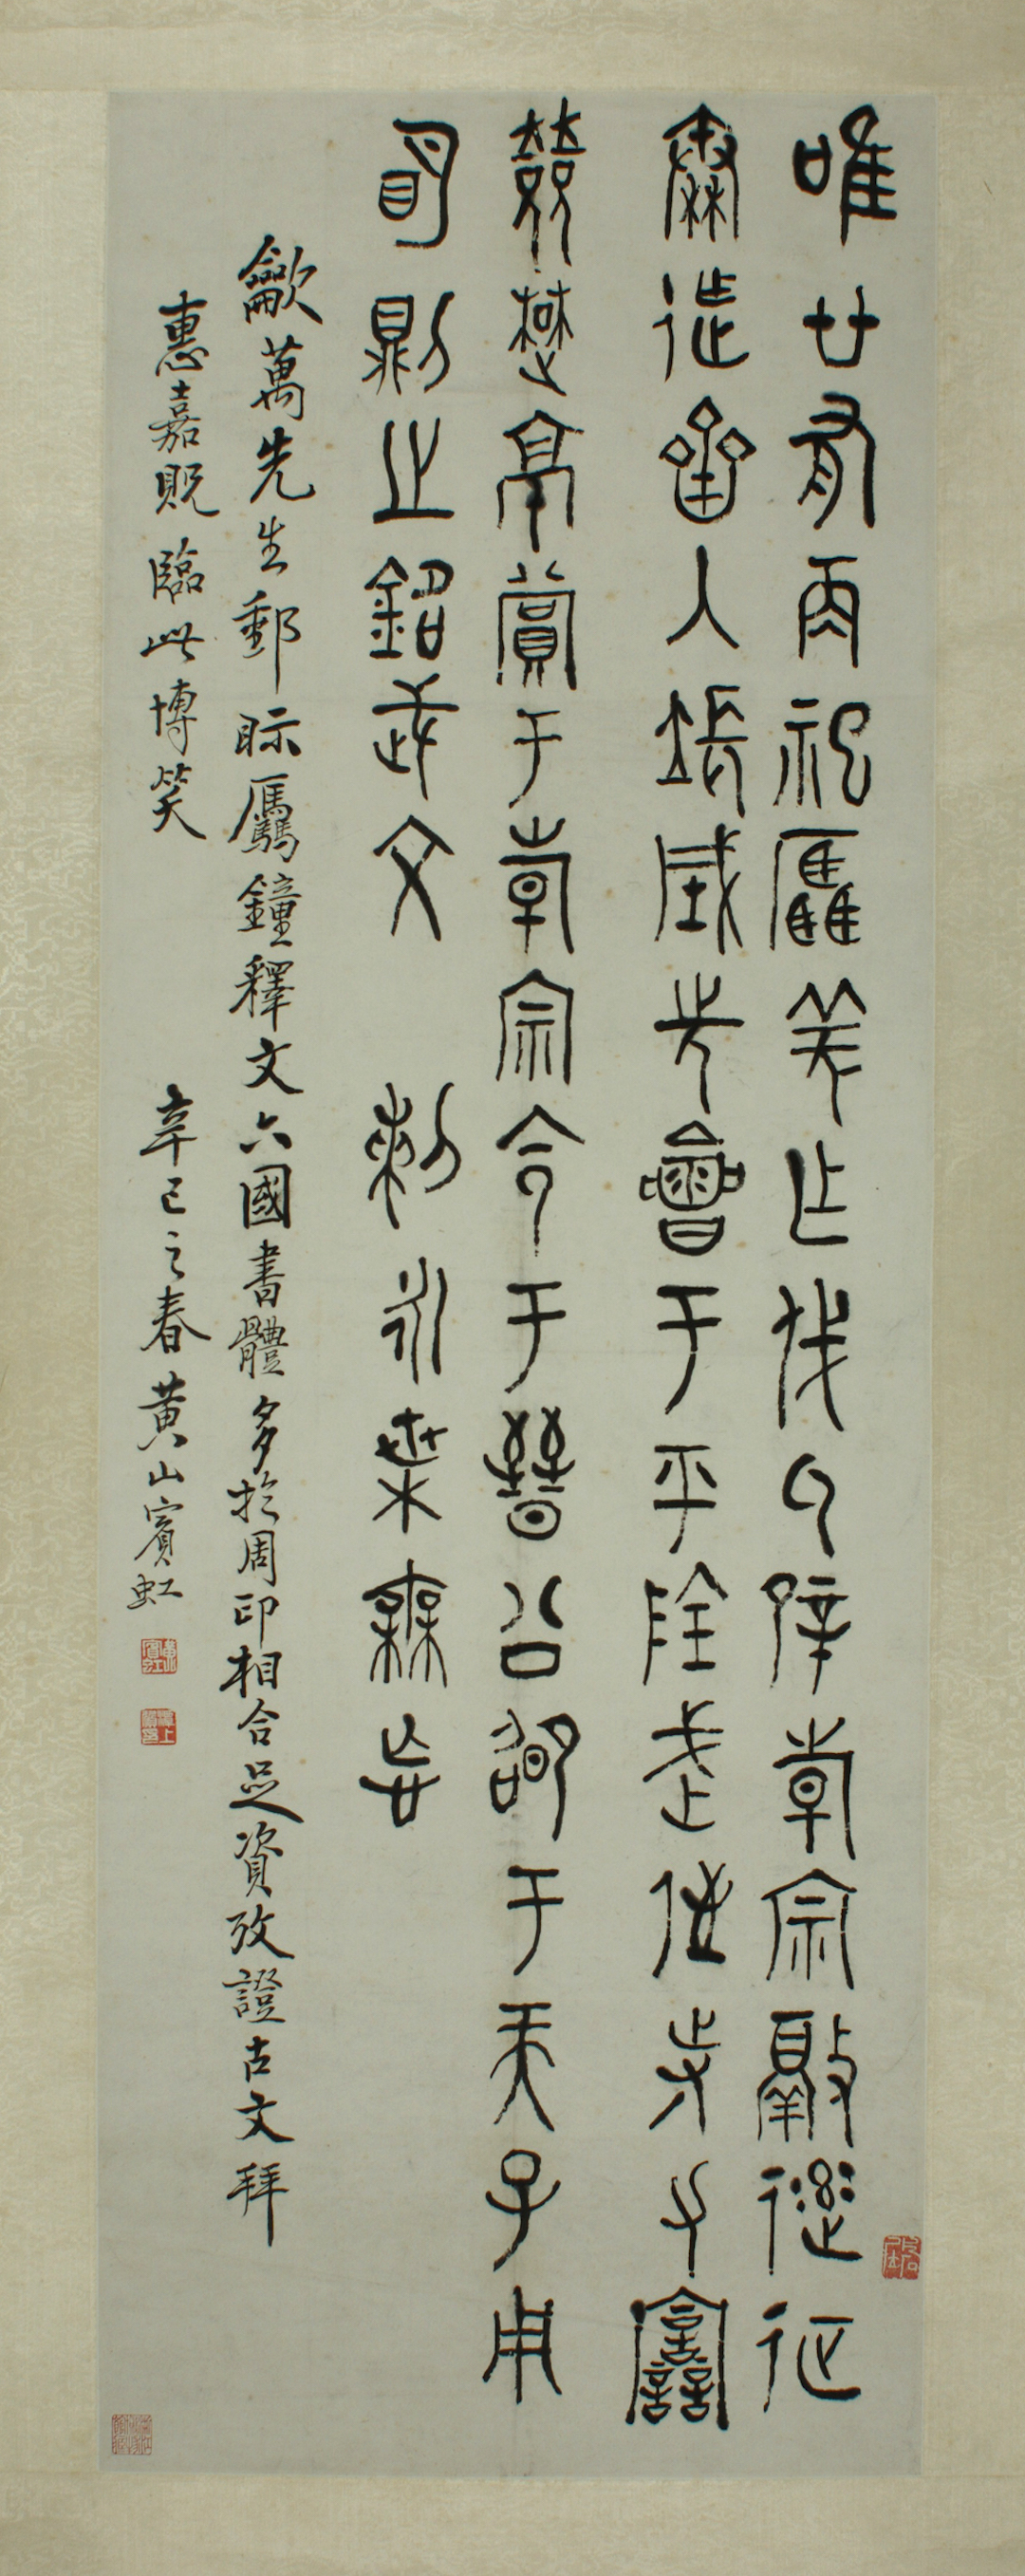 唯廿有再祀驫羌乍戎氒辟倝宗敲征
秦迮齊入張城先會于平陰武侄寺力
敓楚京賞于倝宗令于晉公邵于天子用
明則之銘武文 剌永枼無忘
龡萬先生郵眎驫鐘釋文六國書體多於周印相合足資攷證古文拜
惠嘉貺臨此博笑 辛巳之春黄山賓虹
黃賓虹